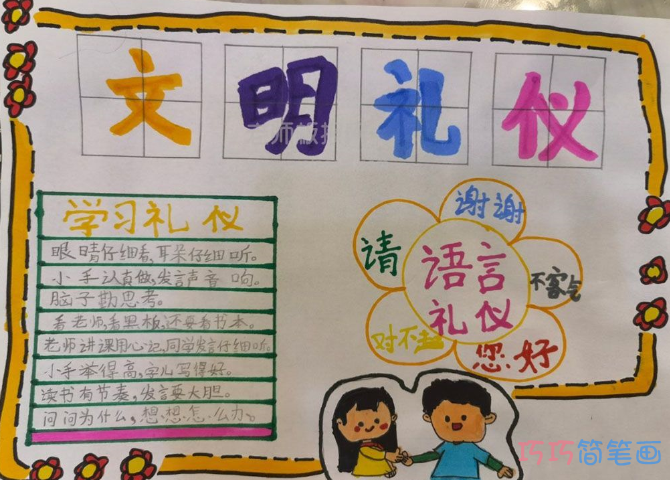 文明礼仪
学习礼仪
眼睛仔细看，耳朵仔细听。
小手认真做，发言声音响。
脑子勤思考。
看老师，看黑板，还要看书本。
老师讲课用心记，同学发言仔细听。
小手举得高，字儿写得好。
读书有节奏，发言要大胆。
问问为什么，想想怎么办。
谢谢
请
语言
礼仪
不客气
对不起
您好
巧巧简笔画